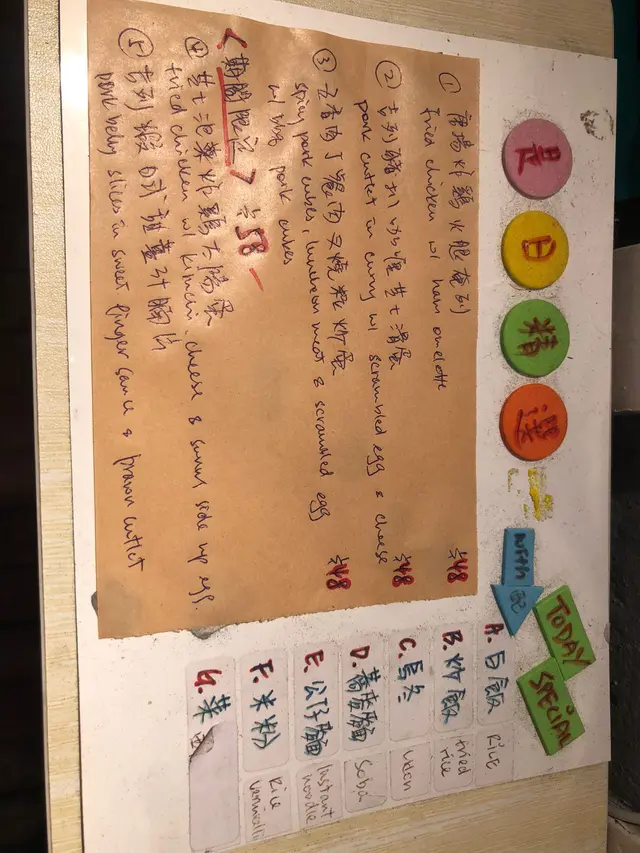 是日精選
TODAY SPECIAL
① 炸雞火腿奄列
fried chicken w/ ham omelotte
$48
② 吉列豬扒咖喱芝士滑蛋
pork cutlet in curry w/ scrambled egg & cheese
$48
③ 五香肉丁餐肉叉燒粒炒蛋
spicy pork cubes, luncheon meat & scrambled egg
w/ bbq pork cubes
$48
<期間限定> $58
④ 芝士泡菜炸雞太陽蛋
fried chicken w/ kimchi, cheese & sunny side up egg.
⑤ 吉列蝦日式薑汁腩片
pork belly slices in sweet ginger sauce & prawn cutlet
with 配
A. 白飯 Rice
B. 炒飯 fried rice
C. 烏冬 udon
D. 蕎麥麵 Soba
E. 公仔麵 Instant noodle
F. 米粉 Rice vermicelli
G. 菜